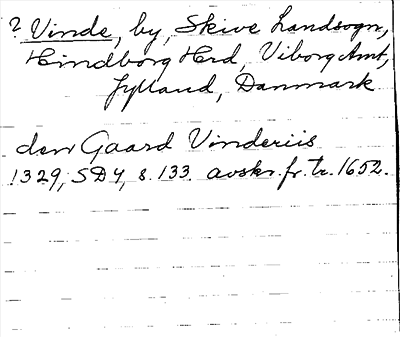 ? Vinde, by, Skive Landsogn,
Hindborg Hrd, Viborg Amt,
Jylland, Danmark
den Gaard Vinderiis
1329, SD4, s. 133. avskr. fr. tr. 1652.